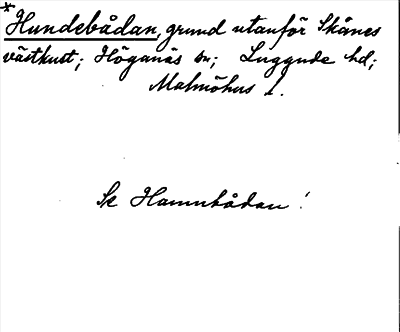 * Hundebådan, grund utanför Skånes
västkust; Höganäs sn; Luggude hd;
Malmöhus l.
Se Hamnbådan!